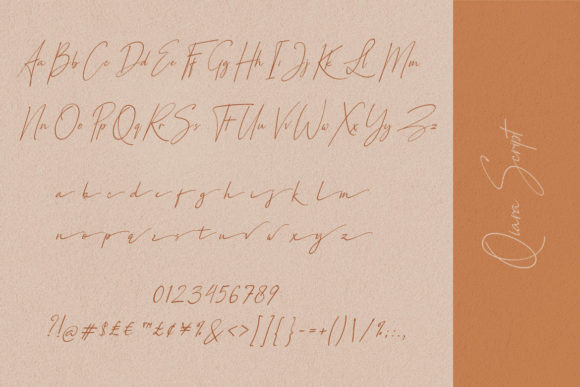 Aa Bb Cc Dd Ee Ff Gg Hh Ii Jj Kk Ll Mm
Nn Oo Pp Qq Rr Ss Tt Uu Vv Ww Xx Yy Zz
a b c d e f g h i j k l m
n o p q r s t u v w x y z
0123456789
?!@#$££€ ™₤¢¥%&<>[]{}-=+()\|/%;:.,
Qiara Script